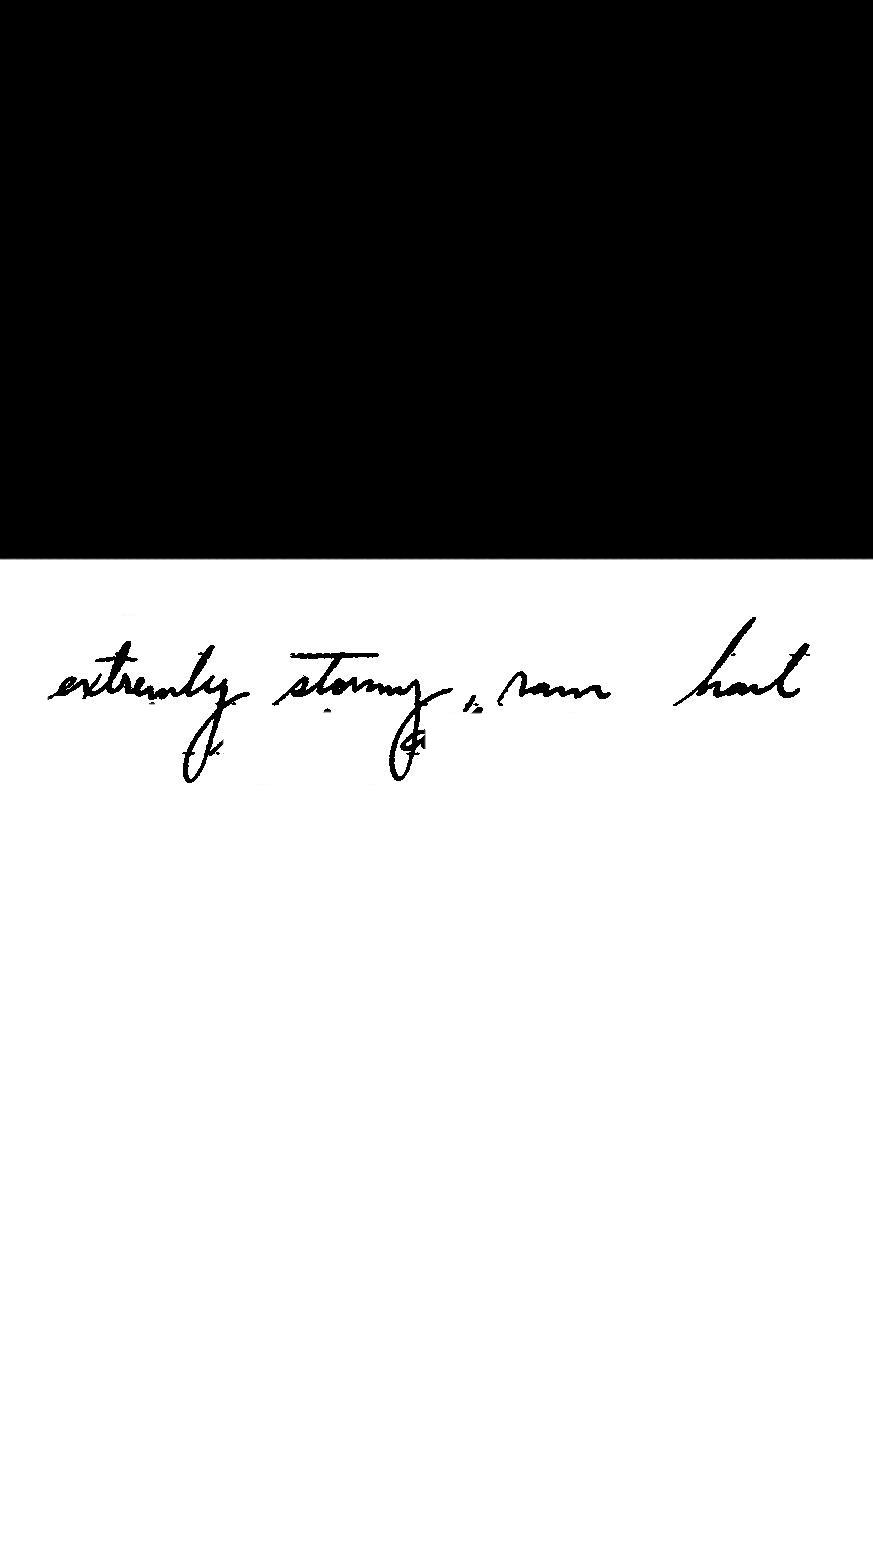 extremly stormy, rain hail